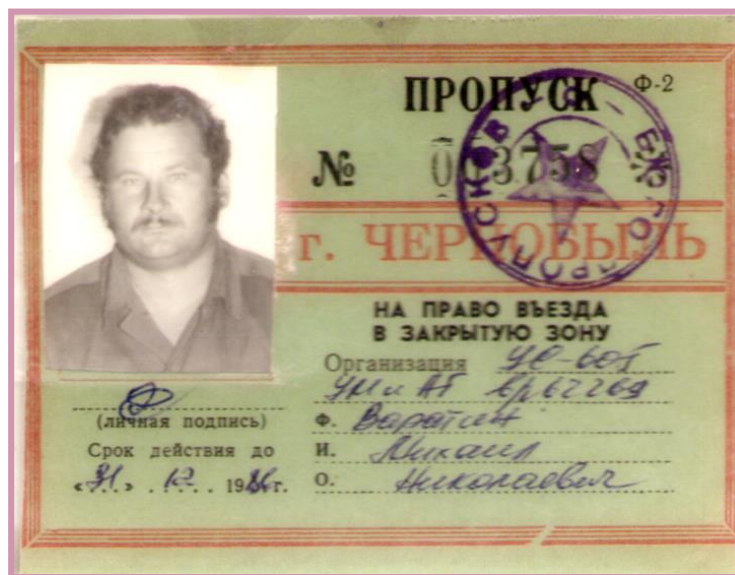 ПРОПУСК Ф-2
№ 003758
г. ЧЕРНОБЫЛЬ
НА ПРАВО ВЪЕЗДА
В ЗАКРЫТУЮ ЗОНУ
Организация УС-605
УМиАТ
Ф. Варатин
И. Михаил
О. Николаевич
(личная подпись)
Срок действия до
«31» 12 1986г.
БЮРО ПРОПУСКОВ